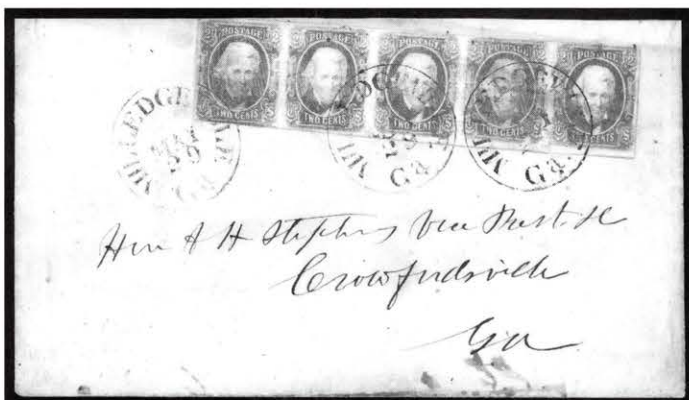 POSTAGE POSTAGE POSTAGE POSTAGE POSTAGE
TWO CENTS TWO CENTS TWO CENTS TWO CENTS TWO CENTS
MILLEDGEVILLE Ga.
MILLEDGEVILLE Ga.
MILLEDGEVILLE Ga.
Hon A H Stephens Vice Prest &c
Crawfordsville
Ga